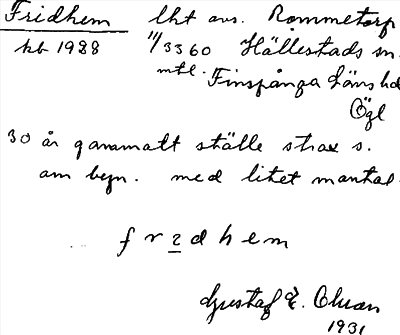 Fridhem lht avs. Rommetorp
kb 1988 11/3360 Hällestads sn.
mtl. Finspånga läns hd
Ögl
30 år gammalt ställe strax s.
om byn. med litet mantal.
fridhem
Gustaf E.
1931